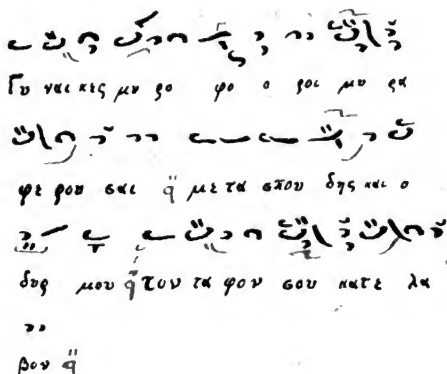 Γυ ναι κες μυ ρο φο ο ροι μυ ρα
φε ρου σαι μετα σπου δης και ο
δυρ μου τον τα φον σου κατε λα
βον